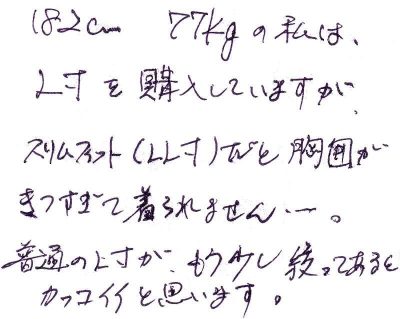 182cm 77kgの私は、
L寸を購入していますが、
スリムフィット(LL寸)だと胸囲が
きつすぎて着られません…。
普通のL寸が、もう少し絞ってあると
カッコイイと思います。